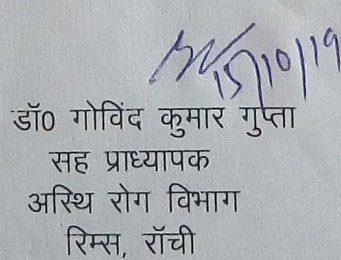 15/10/19
डॉ0 गोविंद कुमार गुप्ता
सह प्राध्यापक
अस्थि रोग विभाग
रिम्स, रॉची